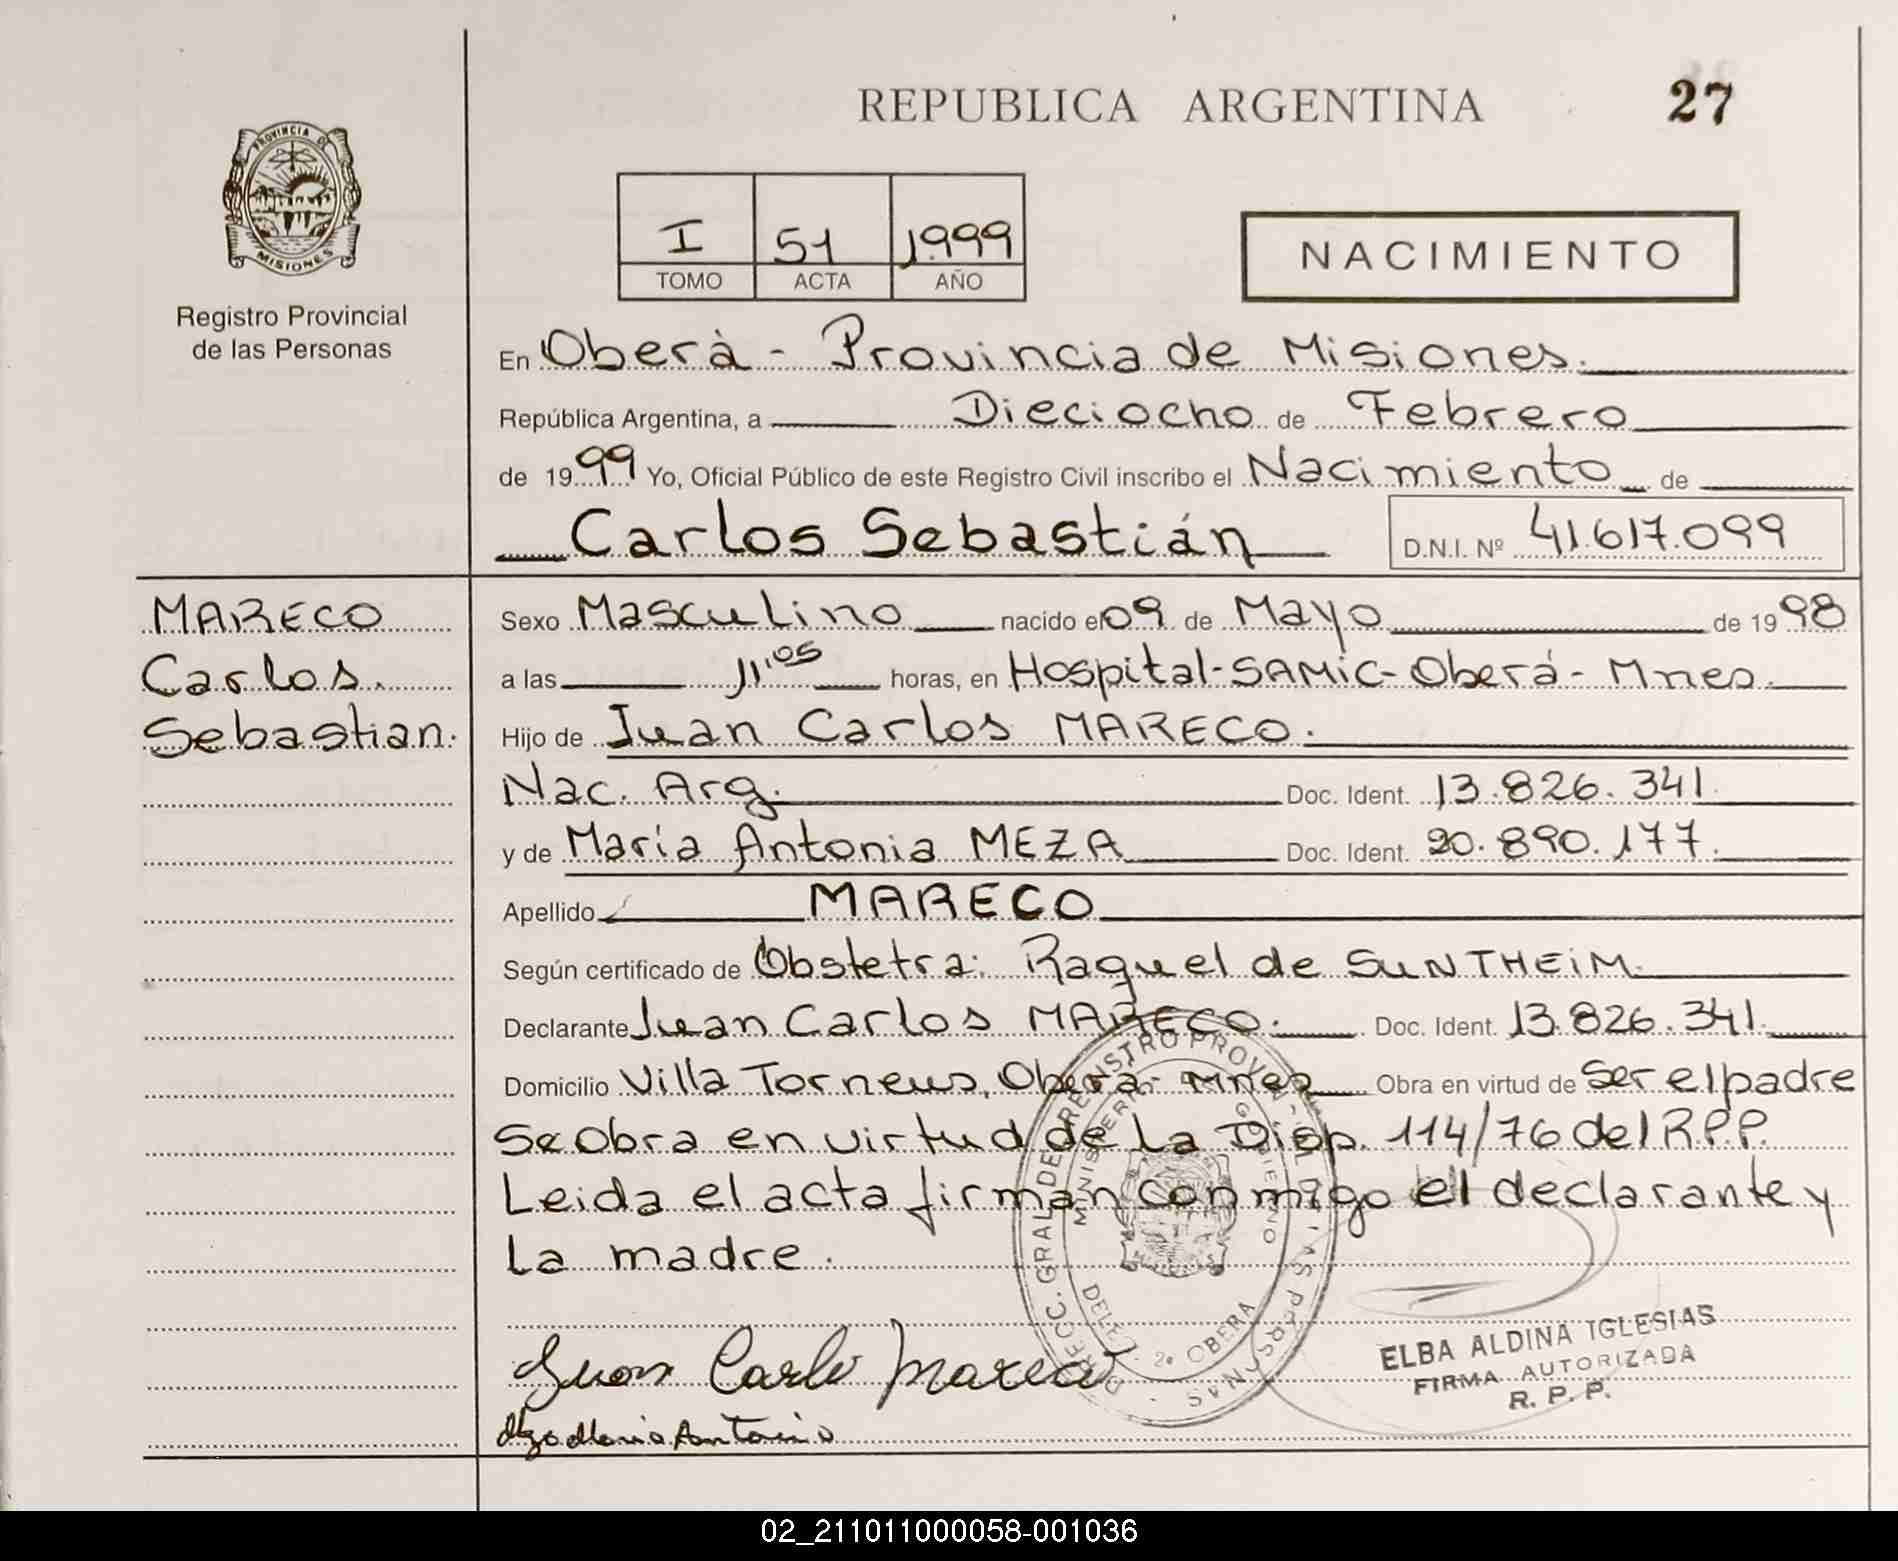 REPUBLICA ARGENTINA 27
PROVINCIA DE MISIONES
Registro Provincial
de las Personas
I 51 1.999
TOMO ACTA AÑO
NACIMIENTO
En Oberà - Provincia de Misiones.
República Argentina, a Dieciocho de Febrero
de 1999 Yo, Oficial Público de este Registro Civil inscribo el Nacimiento de
Carlos Sebastián D.N.I. Nº 41.617.099
MARECO
Carlos.
Sebastian.
Sexo Masculino nacido el 09 de Mayo de 1998
a las 11'05 horas, en Hospital-SAMIC-Oberá- Mnes.
Hijo de Juan Carlos MARECO.
Nac. Arg. Doc. Ident. 13.826.341.
y de María Antonia MEZA Doc. Ident. 20.890.177.
Apellido MARECO
Según certificado de Obstetra: Raquel de SUNTHEIM.
Declarante Juan Carlos MARECO. Doc. Ident. 13.826.341.
Domicilio Villa Torneus, Oberá- Mnes Obra en virtud de Ser el padre
Se Obra en virtud de La Disp. 114/76 del R.P.P.
Leida el acta firman conmigo el declarante y
La madre.
DIRECC. GRAL DE REGISTRO PROVIN- DE LAS PERSONAS
MINISTERIO GOBIERNO
DELEG. 2ª OBERA
Juan Carlo Mareco
Maria Antonia
ELBA ALDINA IGLESIAS
FIRMA AUTORIZADA
R. P. P.
02_211011000058-001036